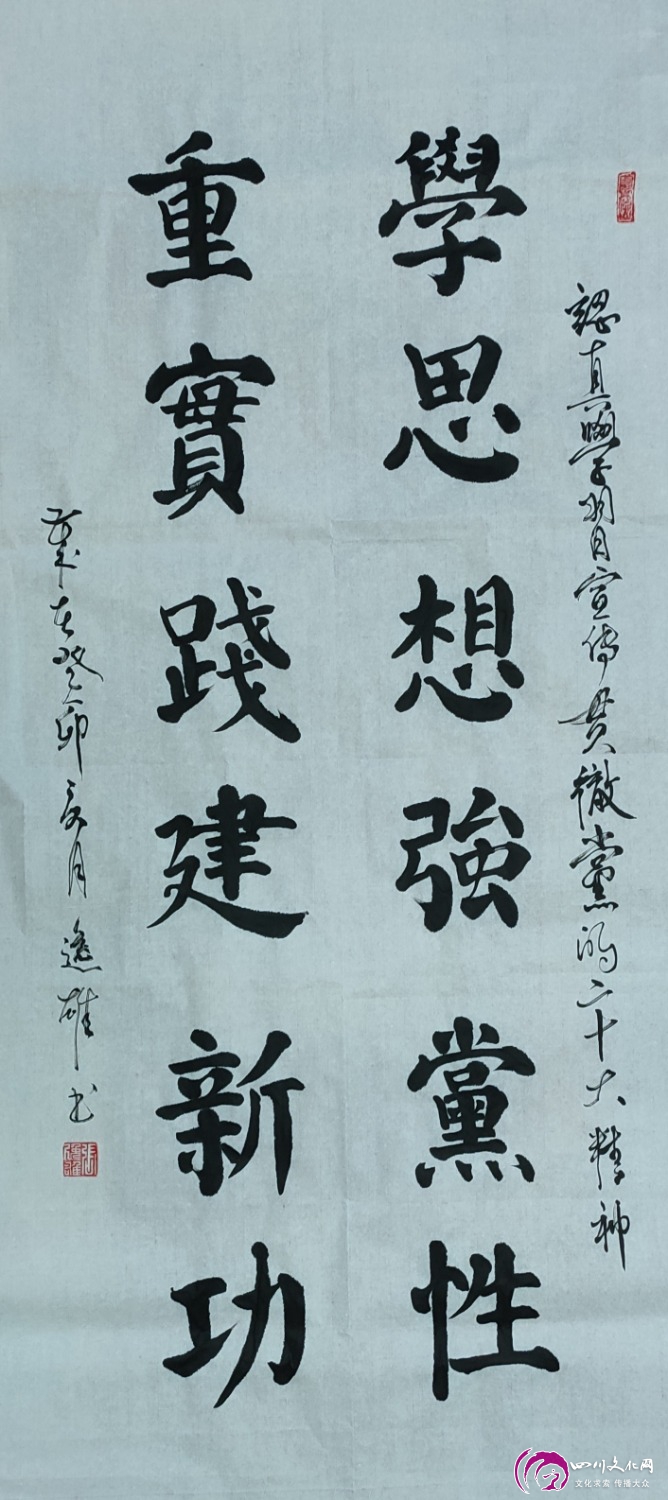 認真學習宣傳貫徹黨的二十大精神
學思想強黨性
重實踐建新功
歲在癸卯夏月逸雄书
四川文化网
文化求索 传播大众